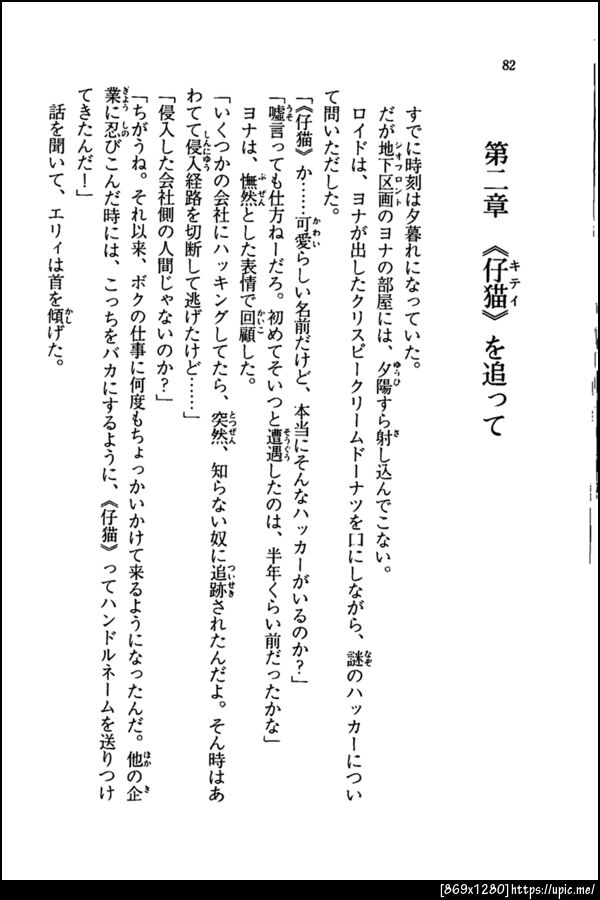 82
第二章　《仔猫》を追って
すでに時刻は夕暮れになっていた。
だが地下区画のヨナの部屋には、夕陽すら射し込んでこない。
ロイドは、ヨナが出したクリスピークリームドーナツを口にしながら、謎のハッカーについ
て問いただした。
「《仔猫》か……可愛らしい名前だけど、本当にそんなハッカーがいるのか？」
「嘘言っても仕方ねーだろ。初めてそいつと遭遇したのは、半年くらい前だったかな」
ヨナは、憮然とした表情で回顧した。
「いくつかの会社にハッキングしてたら、突然、知らない奴に追跡されたんだよ。そん時はあ
わてて侵入経路を切断して逃げたけど……」
「侵入した会社側の人間じゃないのか？」
「ちがうね。それ以来、ボクの仕事に何度もちょっかいかけて来るようになったんだ。他の企
業に忍びこんだ時には、こっちをバカにするように、《仔猫》ってハンドルネームを送りつけ
てきたんだ！」
話を聞いて、エリィは首を傾げた。
[869x1280]https://upic.me/